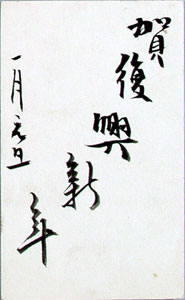 賀復興新年
一月元旦